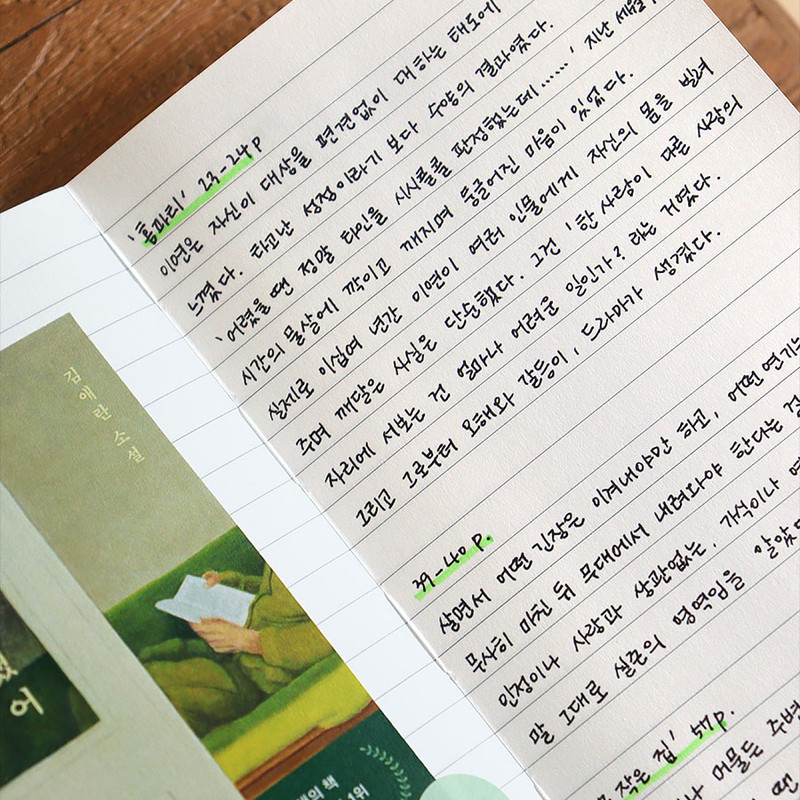 '홈파티' 23-24p
이연은 자신이 대상을 편견없이 대하는 태도에
느꼈다. 타고난 성정이라기 보다 수양의 결과였다.
'어렸을 땐 정말 타인을 시시콜콜 판정했는데……' 지난 세월,
시간의 물살에 깎이고 깨지며 둥글어진 마음이 있었다.
실제로 이십여 년간 이연이 여러 인물에게 자신의 몸을 빌려
주며 깨달은 사실은 단순했다. 그건 '한 사람이 다른 사람의
자리에 서보는 건 얼마나 어려운 일인가?' 라는 거였다.
그리고 그로부터 오해와 갈등이, 드라마가 생겼다.
39-40 p.
살면서 어떤 긴장은 이겨내야만 하고, 어떤 연기는
무사히 마친 뒤 무대에서 내려와야 한다는 걸
인정이나 사랑과 상관없는, 가식이나
말 그대로 실존의 영역임을 알았
작은 집' 57p.
머물든 주변
땐
김애란 소설
어
의 책
1위